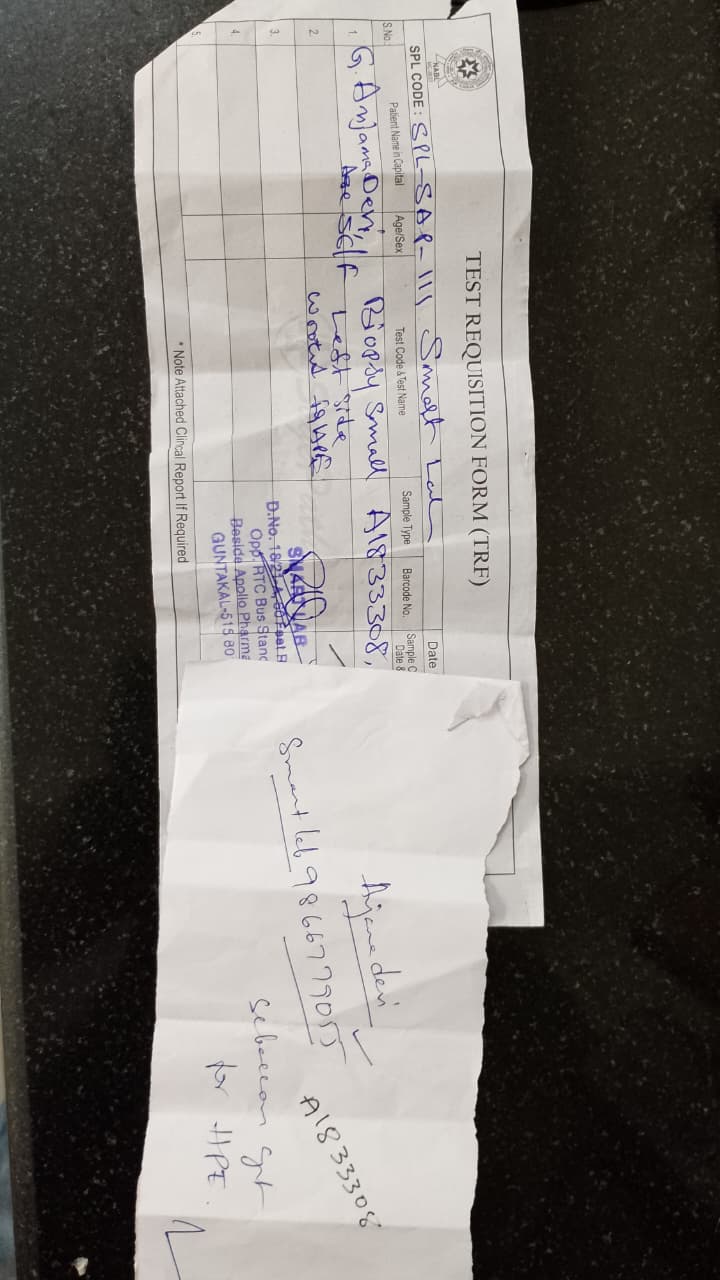 NABL
TEST REQUISITION FORM (TRF)
SPL CODE : SPL-SAP-111 Smart Lab
Date
S.No. Patient Name in Capital Age/Sex Test Code & Test Name Sample Type Barcode No. Sample C
Date &
1. G. Anjana Devi, Biopsy Small A1833308,
Age 56/F Left side
2.
3.
4.
5.
SMART LAB
D.No. 18/
Opp. RTC Bus Stand
Beside Apollo Pharma
GUNTAKAL-515 80
* Note Attached Clincal Report If Required
Anjana devi
Smart lab
A1833308
for HPE.